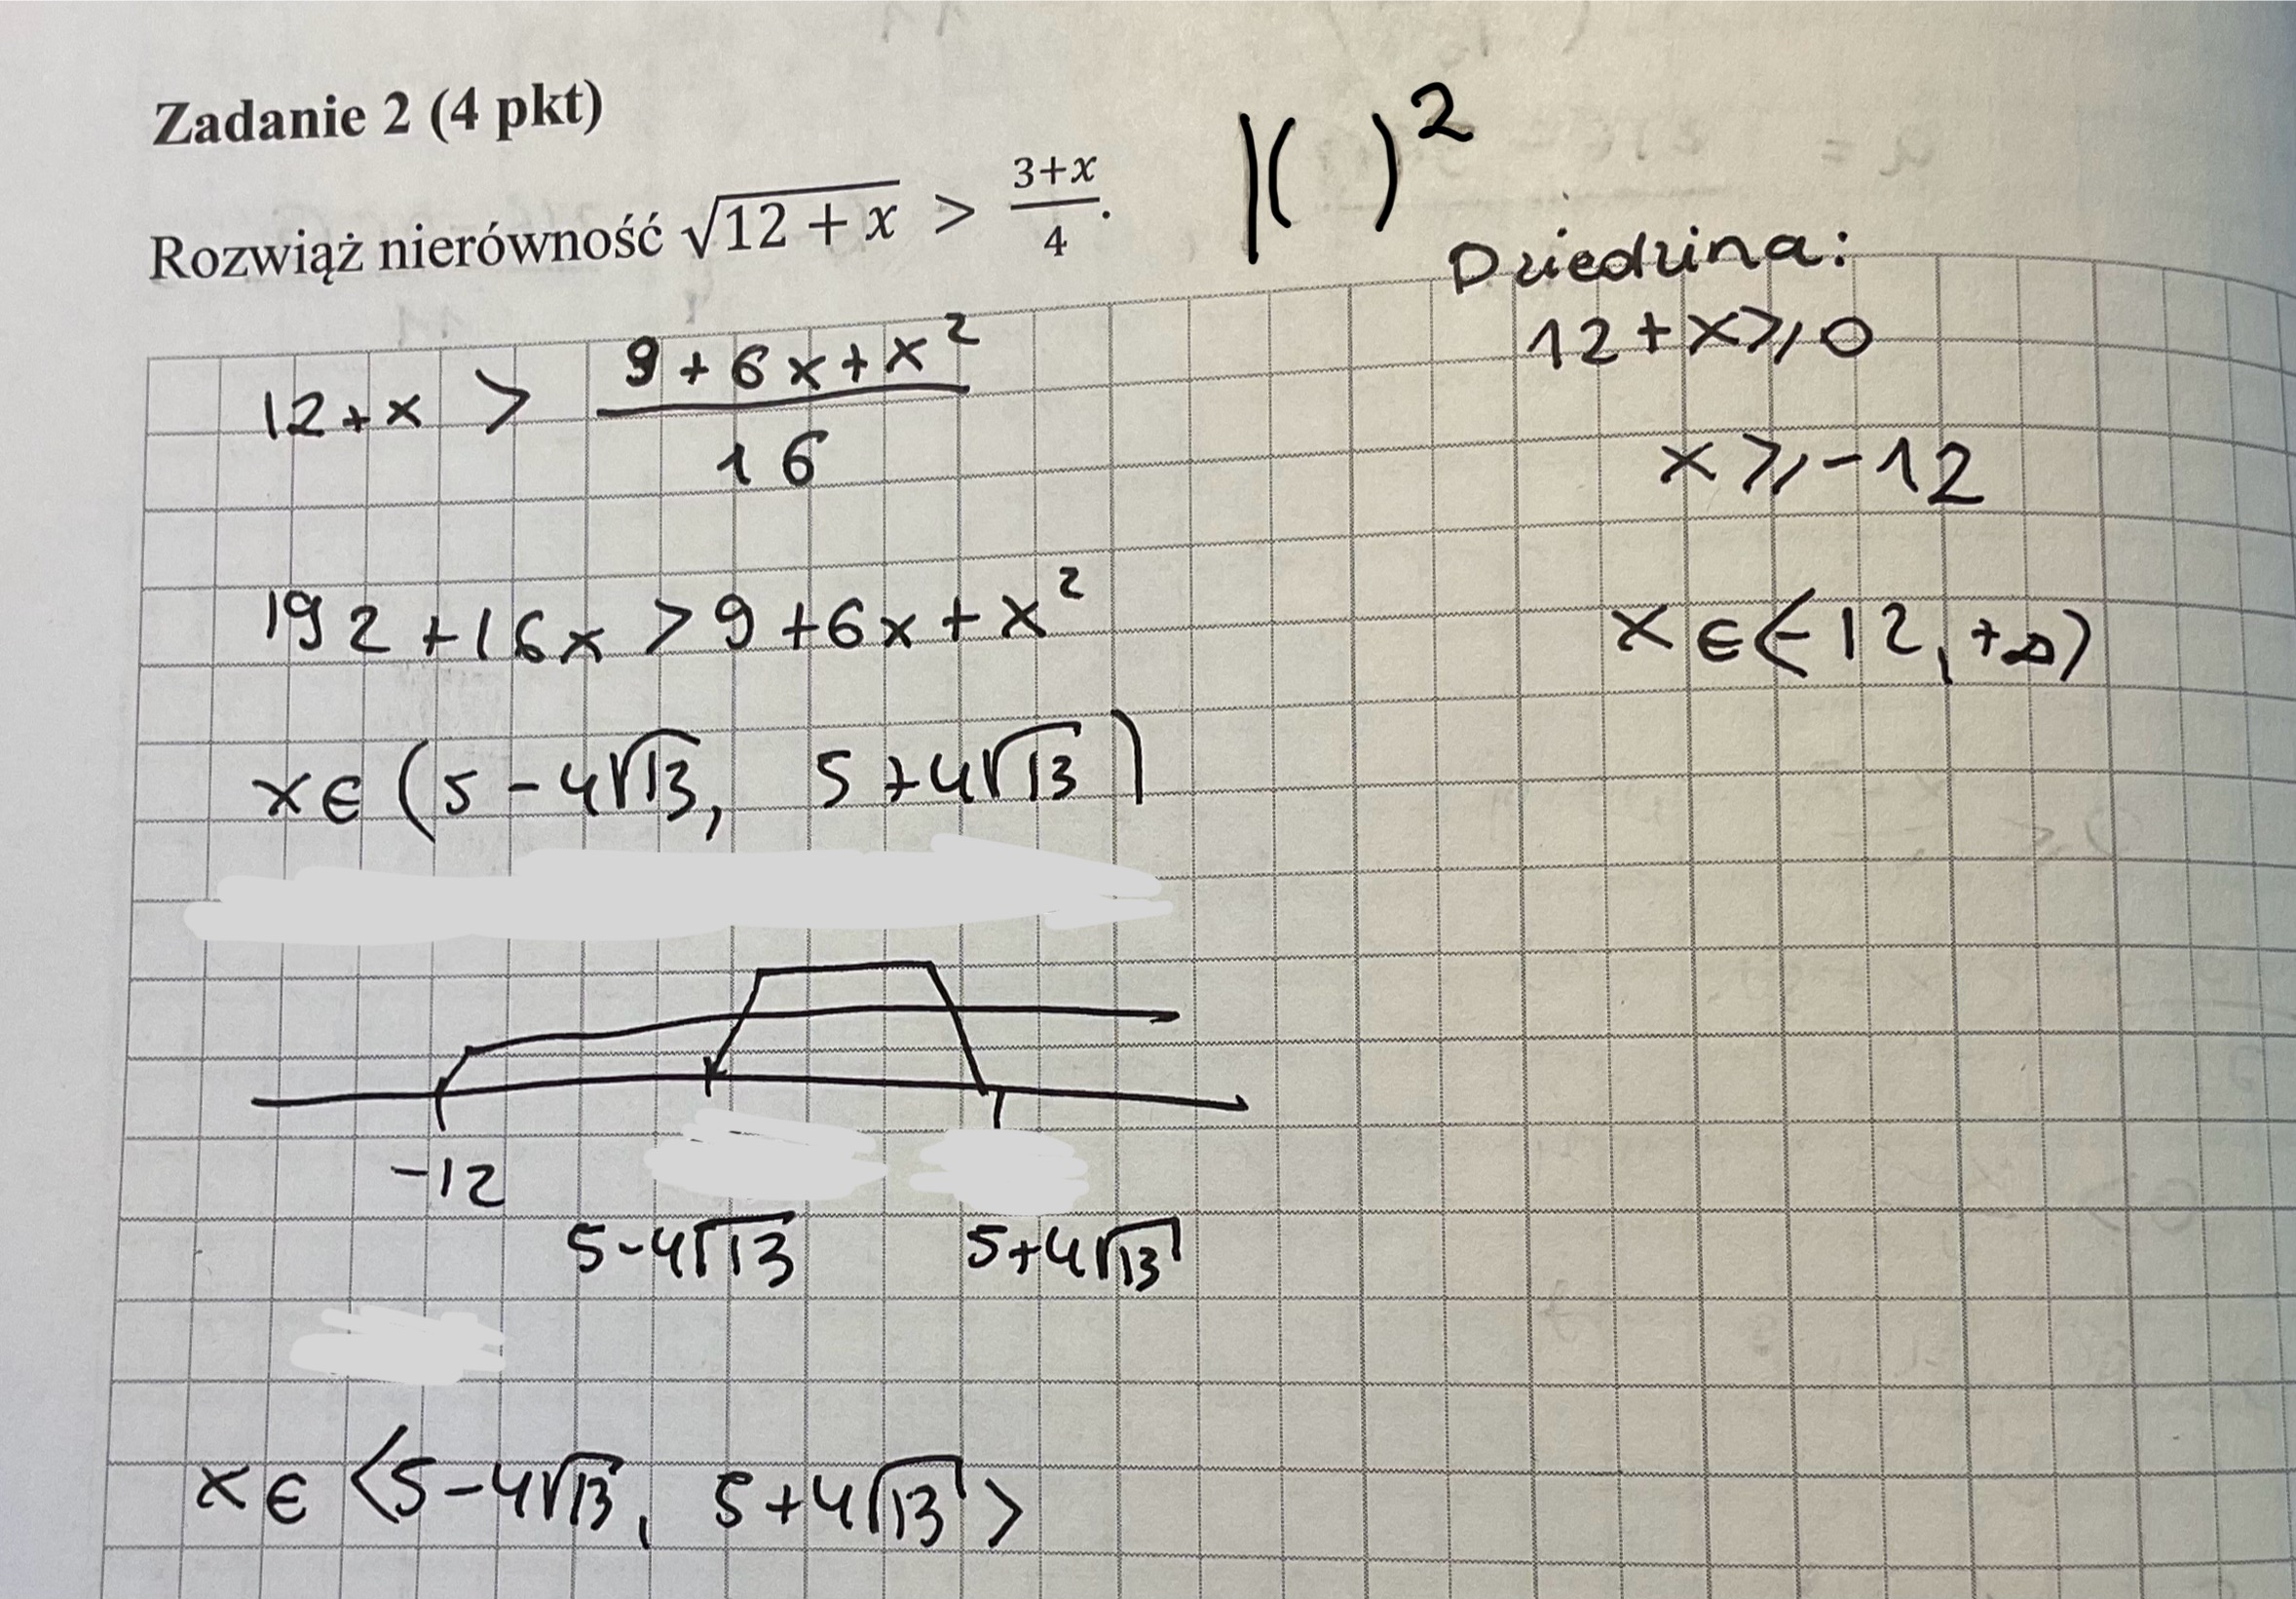 Zadanie 2 (4 pkt)
Rozwiąż nierówność √(12 + x) > (3+x)/4. |( )²
Dziedzina:
12+x⩾0
x⩾-12
x∈⟨-12, +∞)
12+x > (9+6x+x²)/16
192+16x>9+6x+x²
x∈(5-4√13, 5+4√13)
-12
5-4√13 5+4√13
x∈⟨5-4√13, 5+4√13⟩